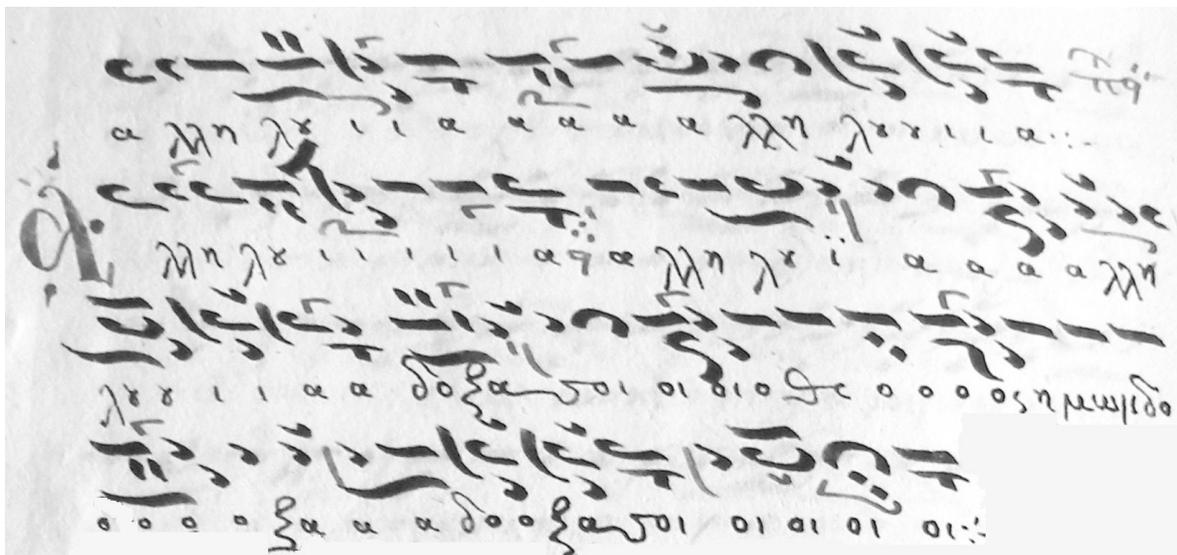 α λλη λȣ ι ι α α α α α λλη λȣ ȣ ι ι α
λλη λȣ ι ι ι ι ι α α λλη λȣ ϊ α α α α λλη
λȣ ȣ ι ι α α δο ξα σοι οι οι ο Θε ο ο ο ος η μων δο
ο ο ο ο ξα α α δο ο ξα σοι οι οι οι οι